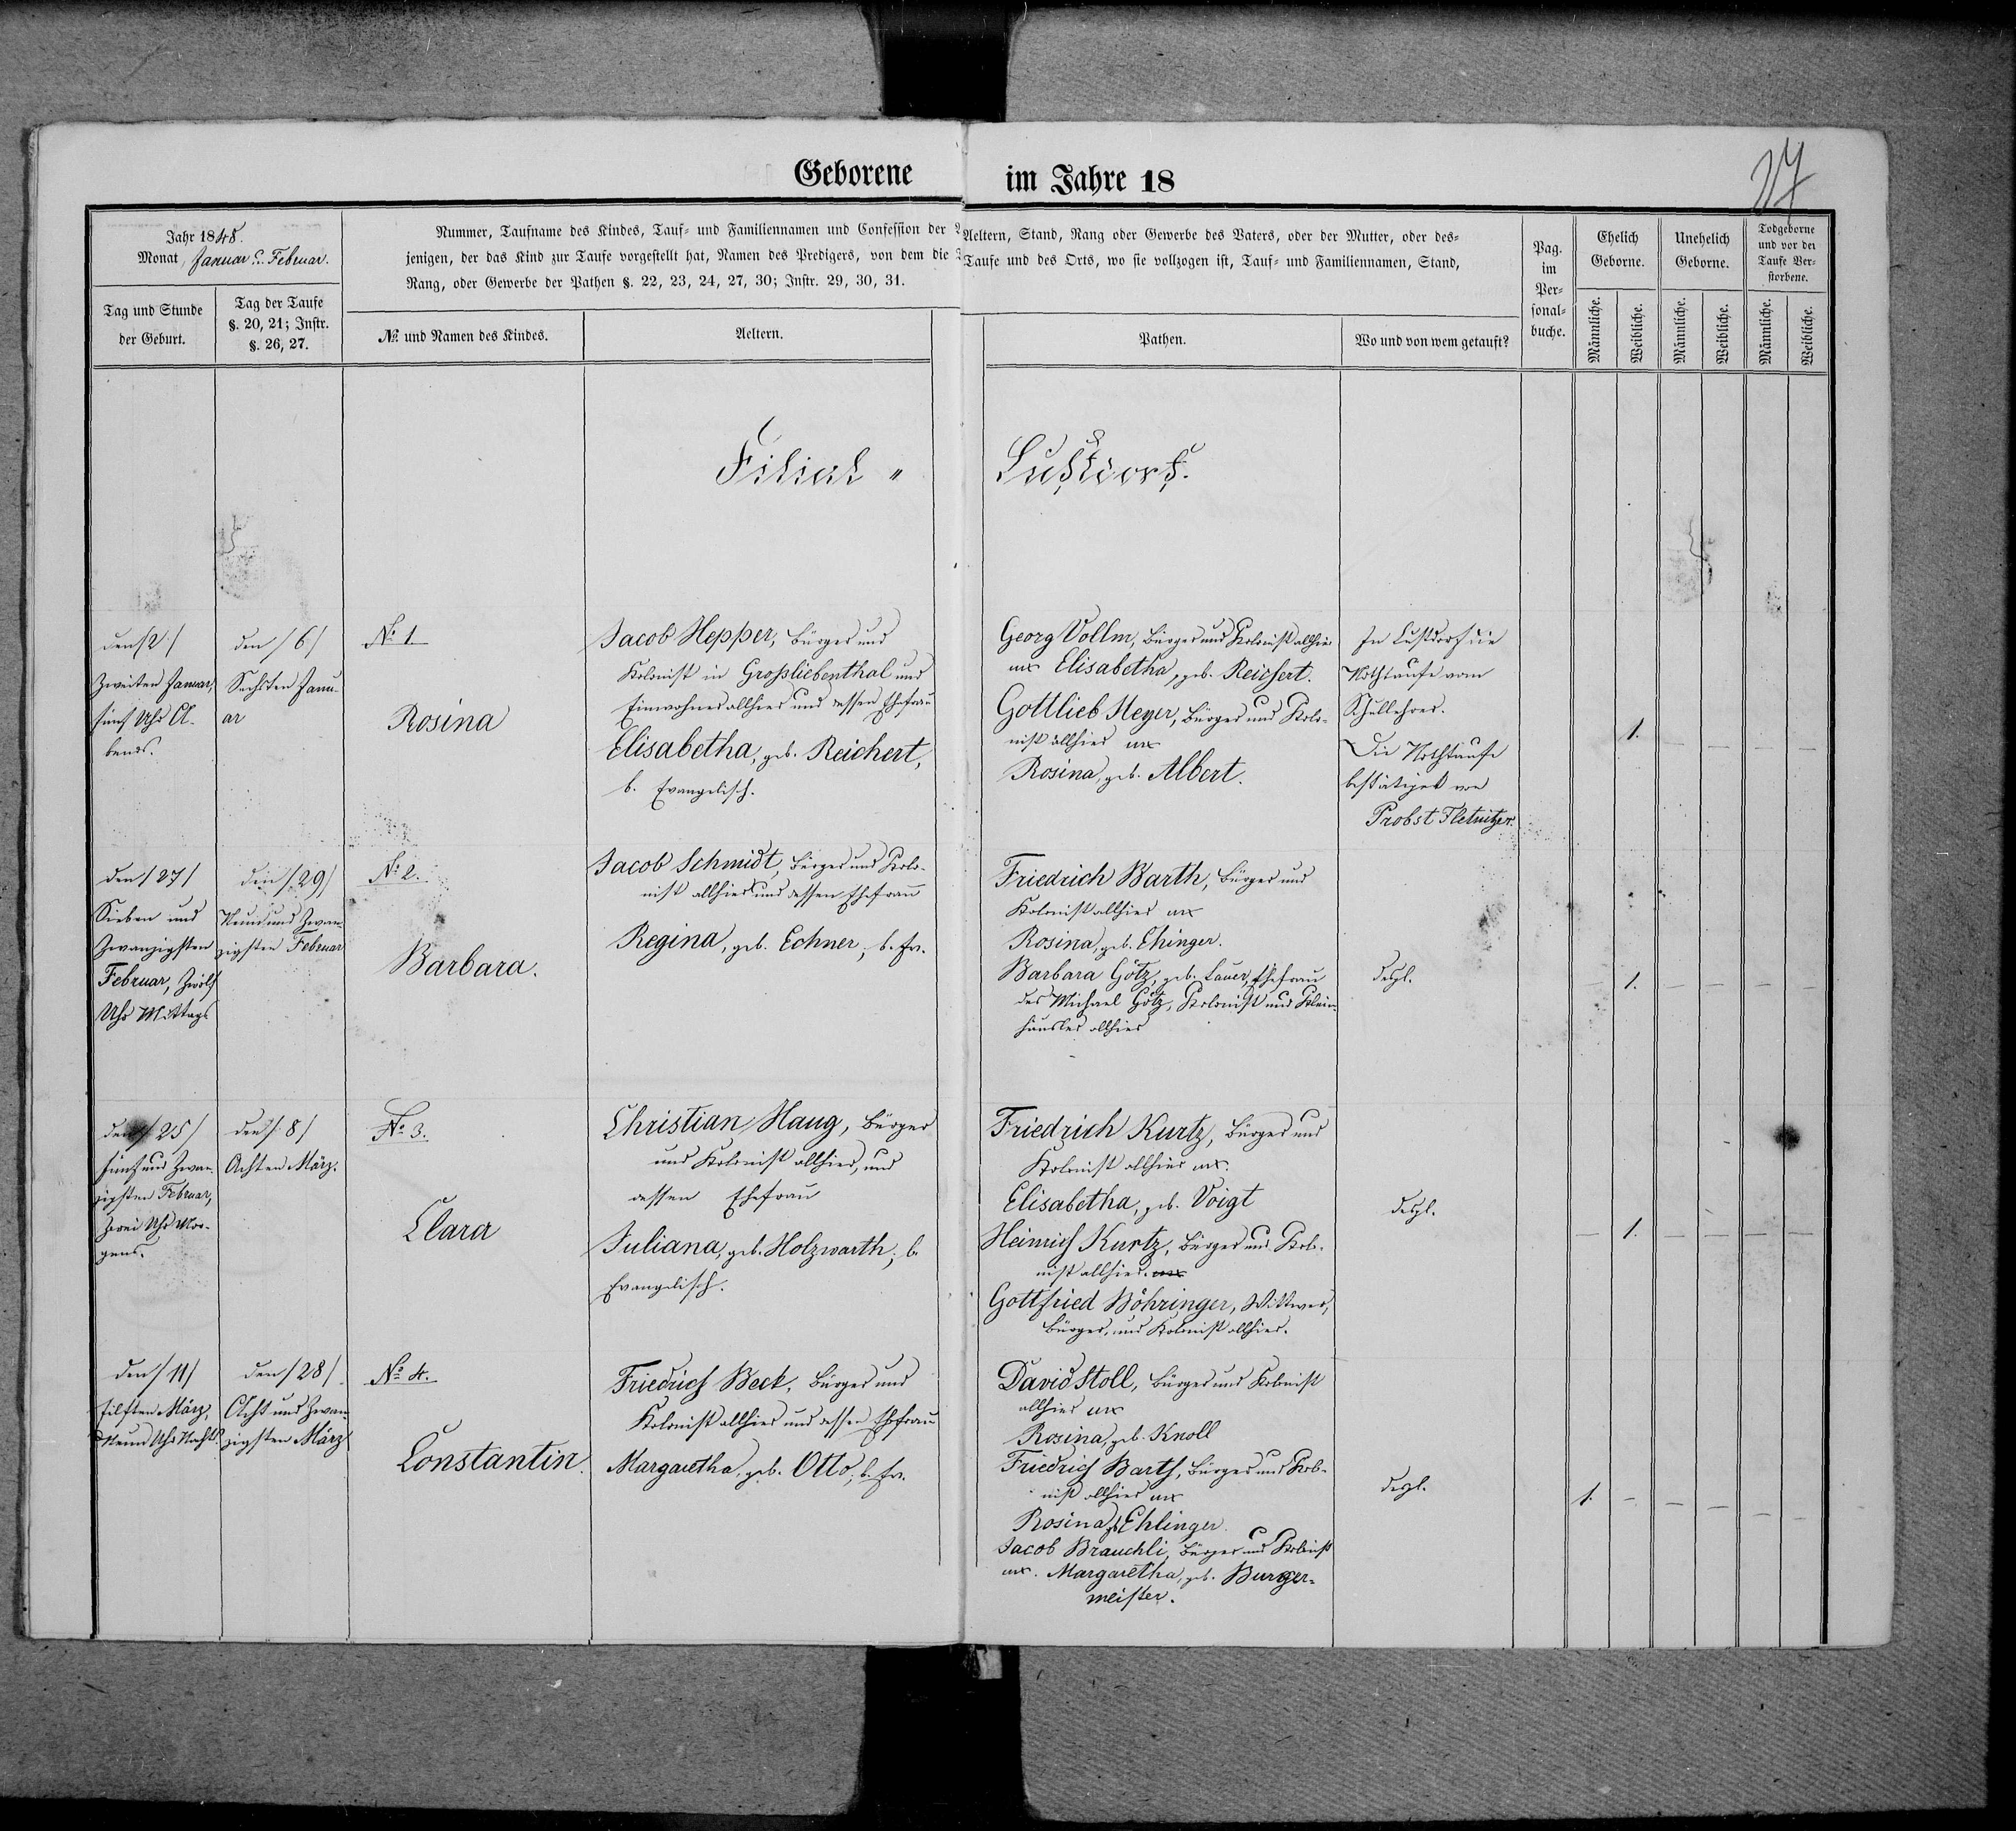 Geborene im Jahre 18
17
Jahr 1848.
Monat, Januar u. Februar.
Tag und Stunde
der Geburt.
Tag der Taufe
§. 20, 21; Instr.
§. 26, 27.
Nummer, Taufname des Kindes, Tauf- und Familiennamen und Confession der
Aeltern, Stand, Rang oder Gewerbe des Vaters, oder der Mutter, oder des-
jenigen, der das Kind zur Taufe vorgestellt hat, Namen des Predigers, von dem die
Taufe und des Orts, wo sie vollzogen ist, Tauf- und Familiennamen, Stand,
Rang, oder Gewerbe der Pathen §. 22, 23, 24, 27, 30; Instr. 29, 30, 31.
№ und Namen des Kindes.
Aeltern.
Pathen.
Wo und von wem getauft?
Pag.
im
Per-
sonal-
buche.
Ehelich
Geborne.
Unehelich
Geborne.
Todgeborne
und vor der
Taufe Ver-
storbene.
Männliche.
Weibliche.
Männliche.
Weibliche.
Männliche.
Weibliche.
Filial "
Lustdorf.
den /2/
Zweiten Januar,
fünf Uhr A-
bends.
den /6/
Sechsten Janu-
ar
№ 1
Rosina
Jacob Hepper, Bürger und
Kolonist in Grossliebenthal und
Einwohner allhier und dessen Ehefrau
Elisabetha, geb. Reichert,
b. Evangelisch.
Georg Vollm, Bürger und Kolonist allhier
ux Elisabetha, geb. Reichert.
Gottlieb Heyer, Bürger und Kolo-
nist allhier ux
Rosina, geb. Albert.
In Lustdorf die
Nothtaufe vom
Schullehrer.
Die Nothtaufe
bestätiget von
Probst Fletnitzer.
1.
den /27/
Sieben und
Zwanzigsten
Februar, Zwölf
Uhr Mittags
den /29/
Neun und Zwan-
zigsten Februar
№ 2.
Barbara.
Jacob Schmidt, Bürger und Kolo-
nist allhier und dessen Ehefrau
Regina, geb. Echner, b. Ev.
Friedrich Barth, Bürger und
Kolonist allhier ux
Rosina, geb. Ehinger.
Barbara Götz, geb. Lauer, Ehefrau
des Michael Götz, Kolonist und Klein-
häusler allhier
desgl.
1.
den /25/
fünf und Zwan-
zigsten Februar,
Zwei Uhr Mor-
gens.
den /8/
Achten März.
№ 3.
Clara
Christian Haug, Bürger
und Kolonist allhier, und
dessen Ehefrau
Juliana, geb. Holzwarth, b.
Evangelisch.
Friedrich Kurtz, Bürger und
Kolonist allhier ux.
Elisabetha, geb. Voigt
Heinrich Kurtz, Bürger und Kolo-
nist allhier. ux
Gottfried Böhringer, Wittwer,
Bürger, und Kolonist allhier.
desgl.
1.
den /11/
Eilften März,
Neun Uhr Nachts
den /28/
Acht und Zwan-
zigsten März
№ 4.
Constantin.
Friedrich Beck, Bürger und
Kolonist allhier und dessen Ehefrau
Margaretha, geb. Otto, b. Ev.
David Stoll, Bürger und Kolonist
allhier ux
Rosina, geb. Knoll
Friedrich Barth, Bürger und Kolo-
nist allhier ux
Rosina, gb Ehlinger.
Jacob Brauchli, Bürger und Kolonist
ux. Margaretha, geb. Burger-
meister.
desgl.
1.